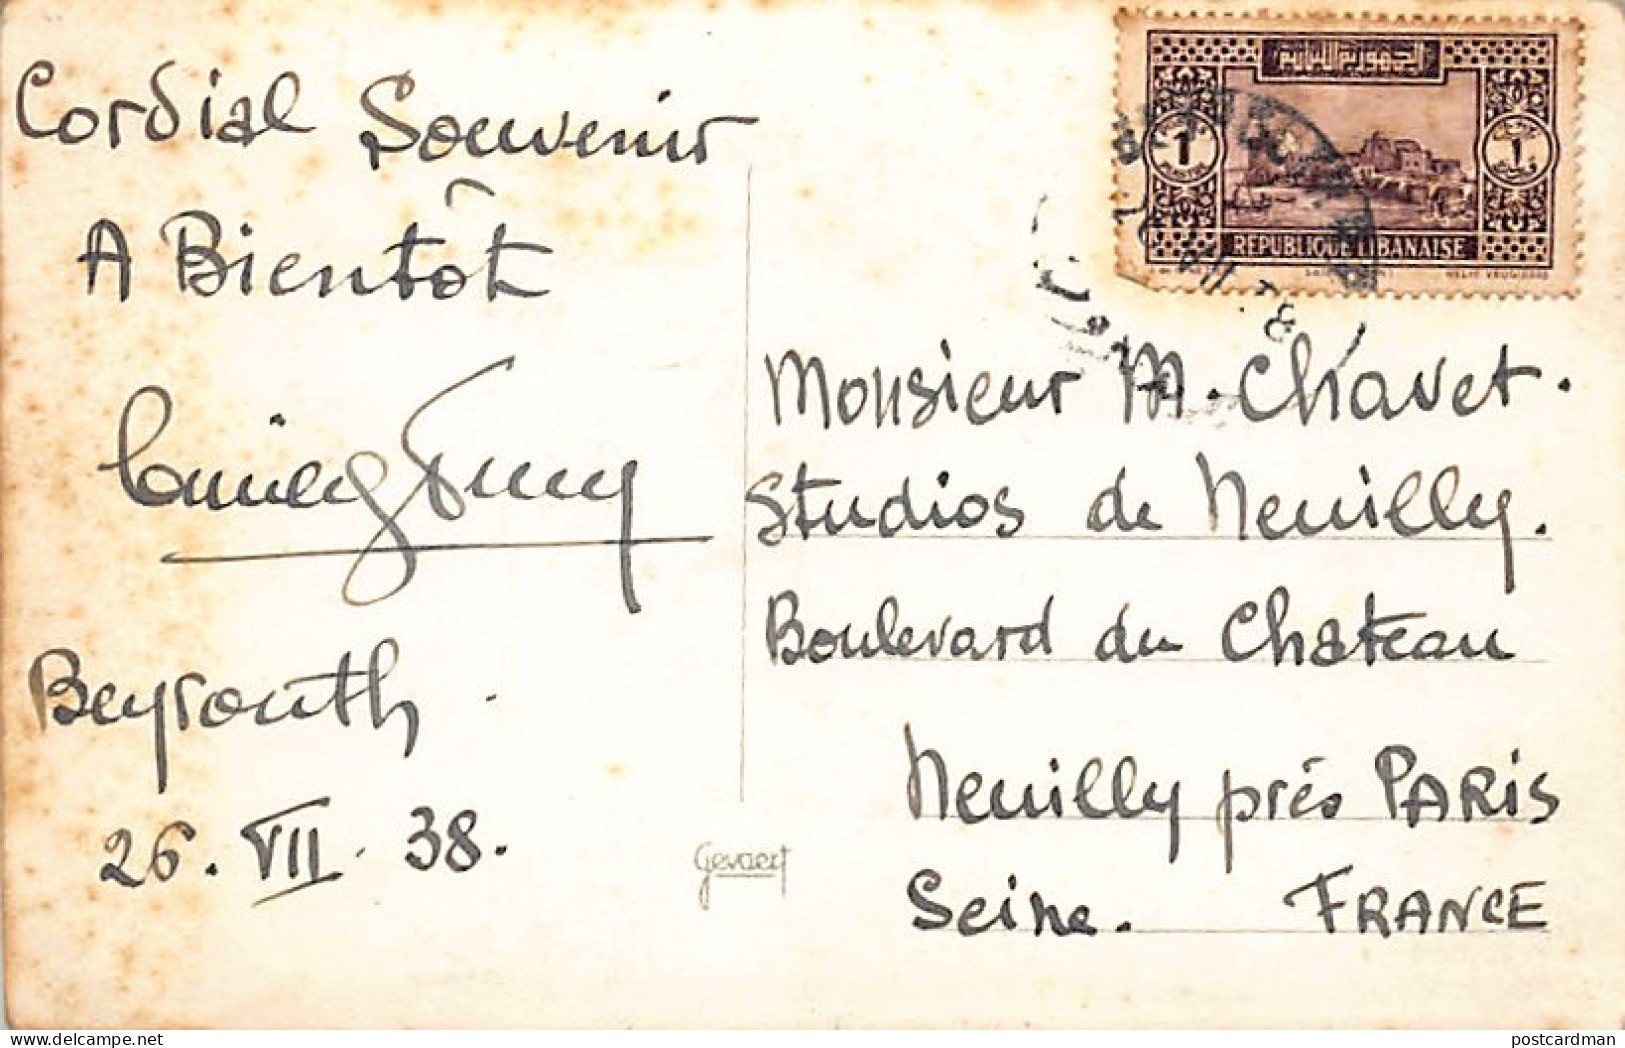 Cordial Souvenir
A Bientôt
Beyrouth.
26. VII. 38.
Gevaert
الجمهورية اللبنانية
1
PIASTRE
١
REPUBLIQUE LIBANAISE
HELIO VAUGIRARD
Monsieur M. Chavet.
Studios de Neuilly.
Boulevard du Chateau
Neuilly près PARIS
Seine. FRANCE
postcardman